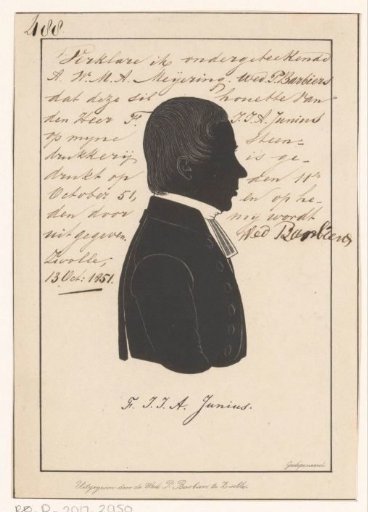 488
Verklare ik ondergeteekende
A. W. M. A. Meijering. Wed. P. Barbiers
dat deze sil houette van
den Heer F. J. J. A. Junius
op mijne Steen-
drukkerij is ge-
drukt op den 11e
October 51, en op he-
den door mij wordt
uitgegeven. Wed Barbiers
Zwolle,
13 Oct: 1851.
F. J. J. A. Junius.
Gedeponeerd.
Uitgegeven door de Wed. P. Barbiers te Zwolle.